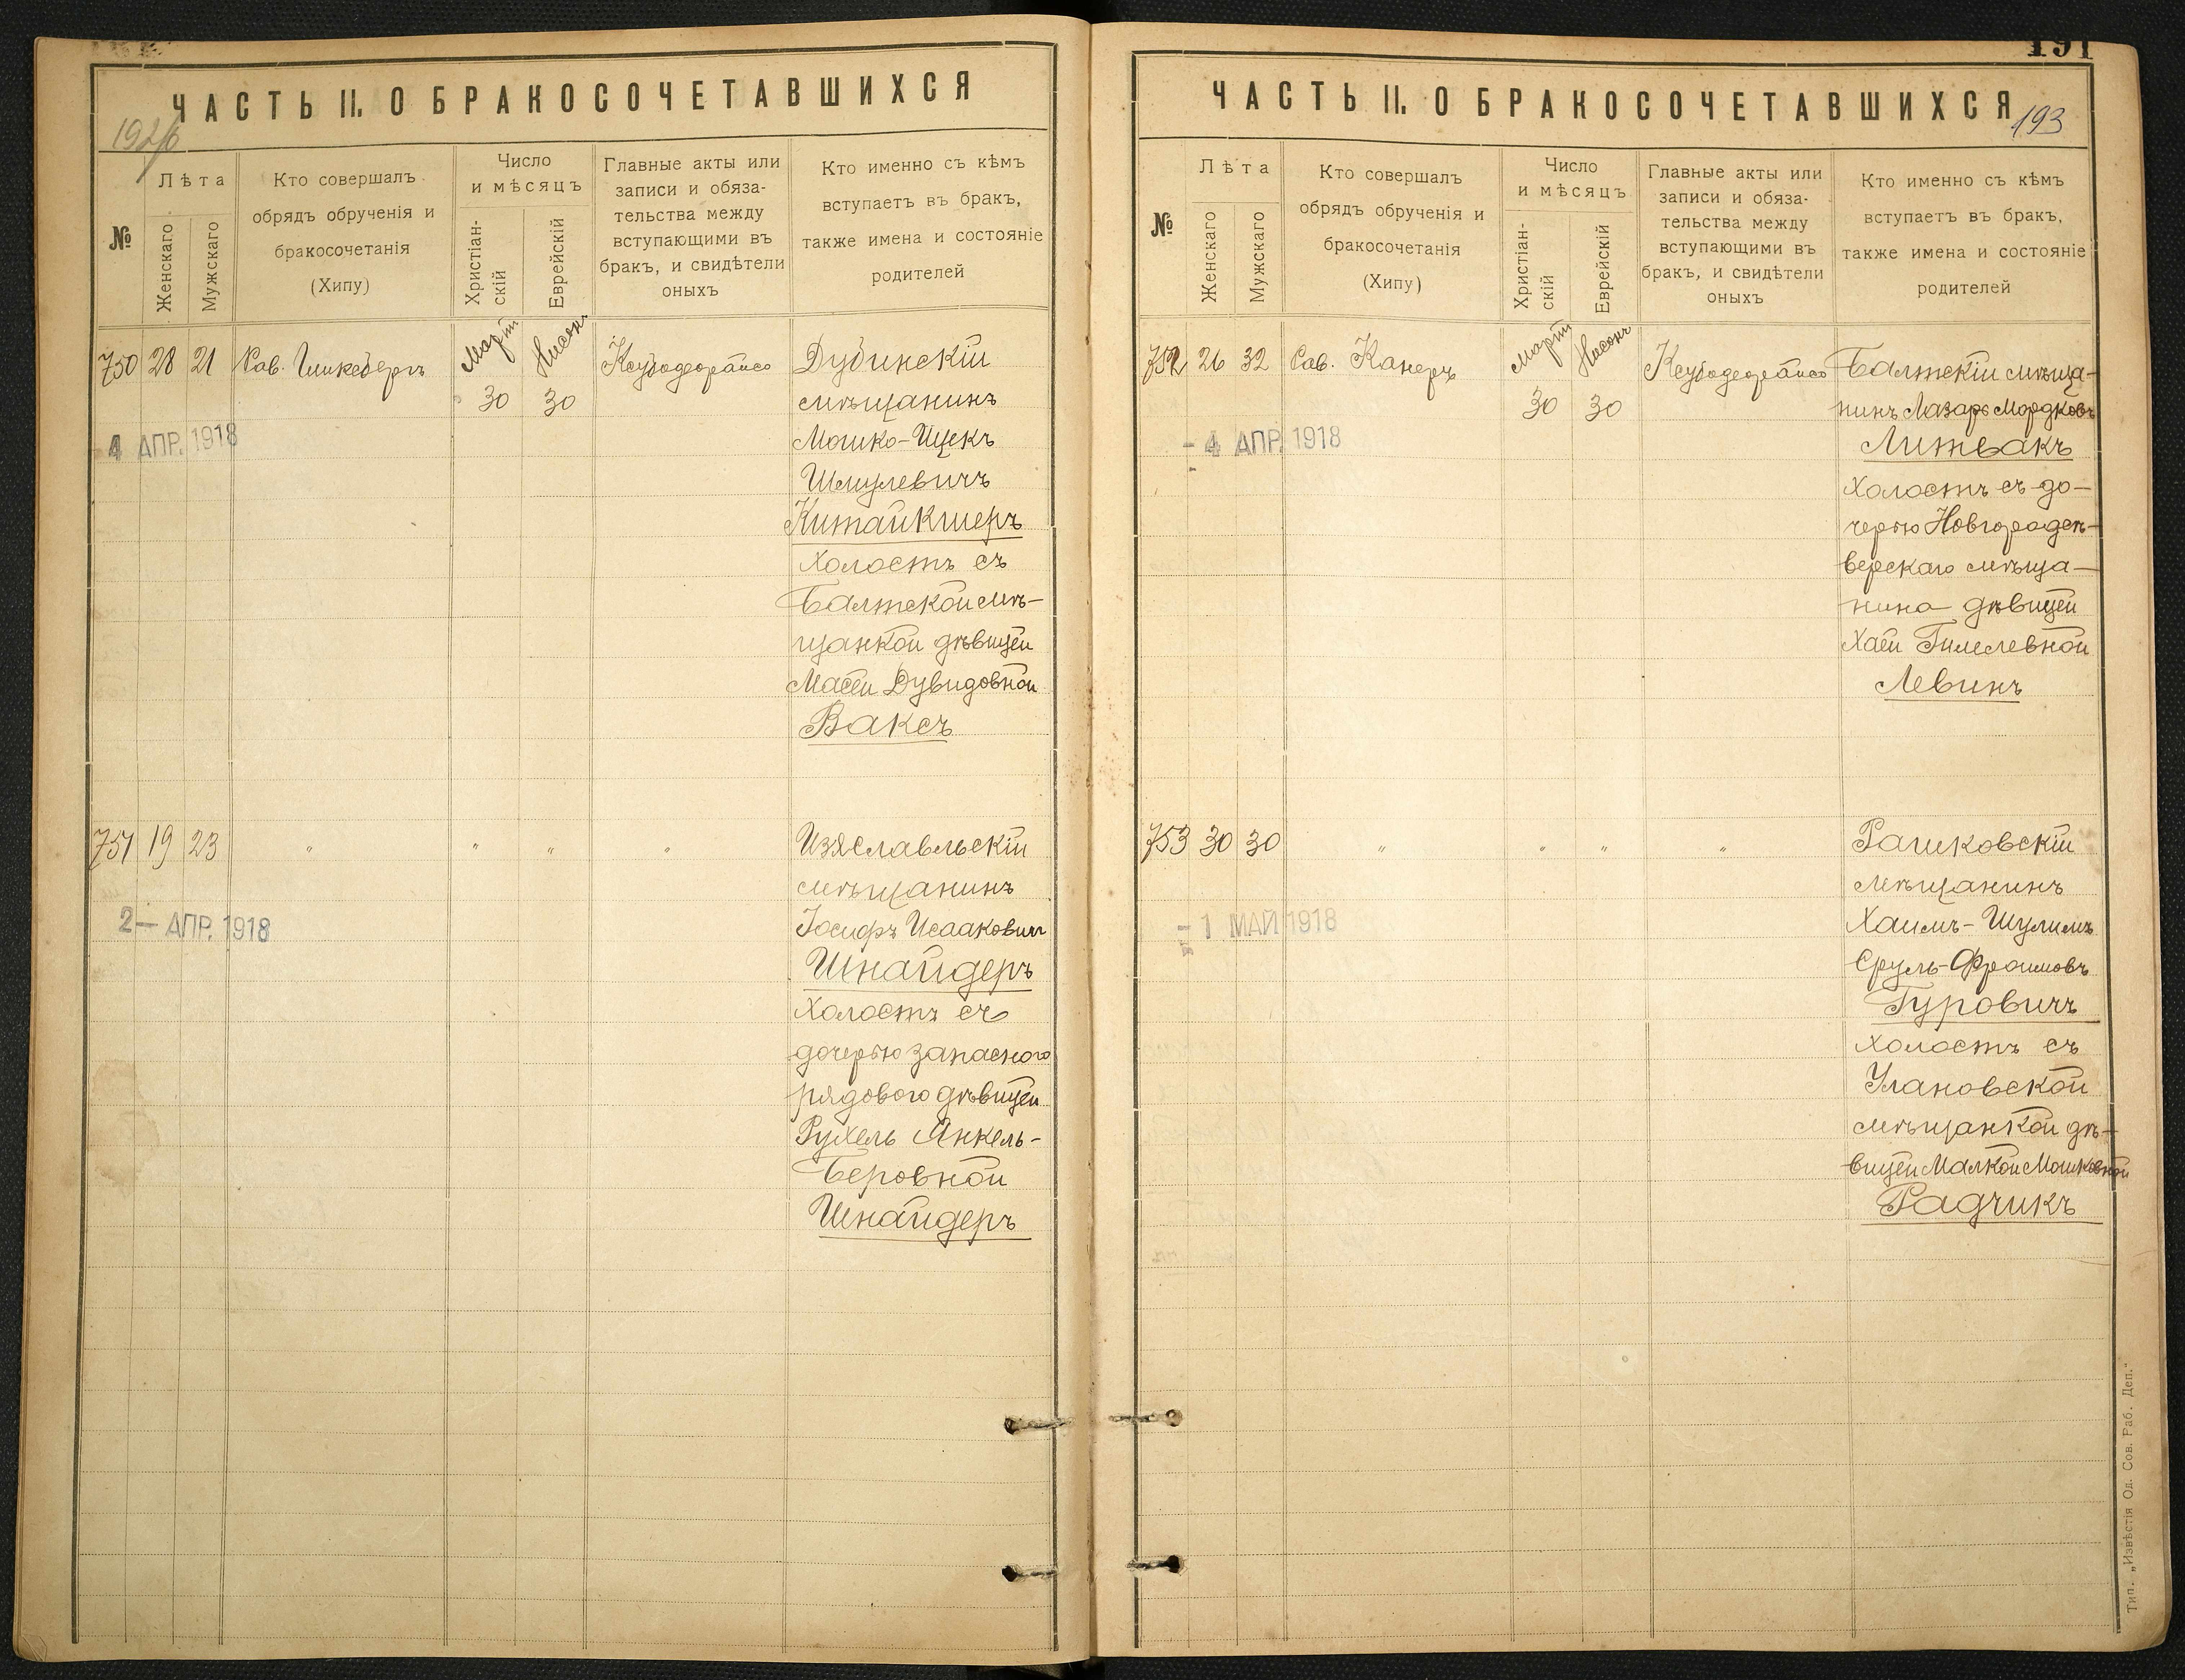 ЧАСТЬ II. О БРАКОСОЧЕТАВШИХСЯ
№
Лѣта
Женскаго
Мужскаго
Кто совершалъ
обрядъ обрученія и
бракосочетанія
(Хипу)
Число
и мѣсяцъ
Христіан-
скій
Еврейскій
Главные акты или
записи и обяза-
тельства между
вступающими въ
бракъ, и свидѣтели
оныхъ
Кто именно съ кѣмъ
вступаетъ въ бракъ,
также имена и состояніе
родителей
750 28 21 Рав.
Мартъ Нисонъ
30 30
4 АПР. 1918
Дубинскій
мѣщанинъ
Мошко-Ицекъ
Шмулевичъ
Китайкшеръ
Холостъ съ
Балтской мѣ-
щанкой дѣвицей
Масей Дувидовной
Ваксъ
751 19 23 " " " "
2 – АПР. 1918
Изяславльскій
мѣщанинъ
Іосифъ Исааковичъ
Шнайдеръ
Холостъ съ
дочерью запасного
рядового дѣвицей
Рухель Янкель-
Беровной
Шнайдеръ
191
ЧАСТЬ II. О БРАКОСОЧЕТАВШИХСЯ
193
№
Лѣта
Женскаго
Мужскаго
Кто совершалъ
обрядъ обрученія и
бракосочетанія
(Хипу)
Число
и мѣсяцъ
Христіан-
скій
Еврейскій
Главные акты или
записи и обяза-
тельства между
вступающими въ
бракъ, и свидѣтели
оныхъ
Кто именно съ кѣмъ
вступаетъ въ бракъ,
также имена и состояніе
родителей
752 26 32 Рав. Канеръ
Мартъ Нисонъ
30 30
- 4 АПР. 1918
Балтскій мѣща-
нинъ Лазарь Мордковъ
Литвакъ
Холостъ съ до-
черью Новградсѣ-
верскаго мѣща-
нина дѣвицей
Хаей Гилелевной
Левинъ
753 30 30 " " " "
- 1 МАЙ 1918
Рашковскій
мѣщанинъ
Хаимъ-Шулимъ
Сруль-Фроимовъ
Гуровичъ
Холостъ съ
Улановской
мѣщанкой дѣ-
вицей Малкой Мошковной
Радчикъ
Тип. „Извѣстія Од. Сов. Раб. Деп."